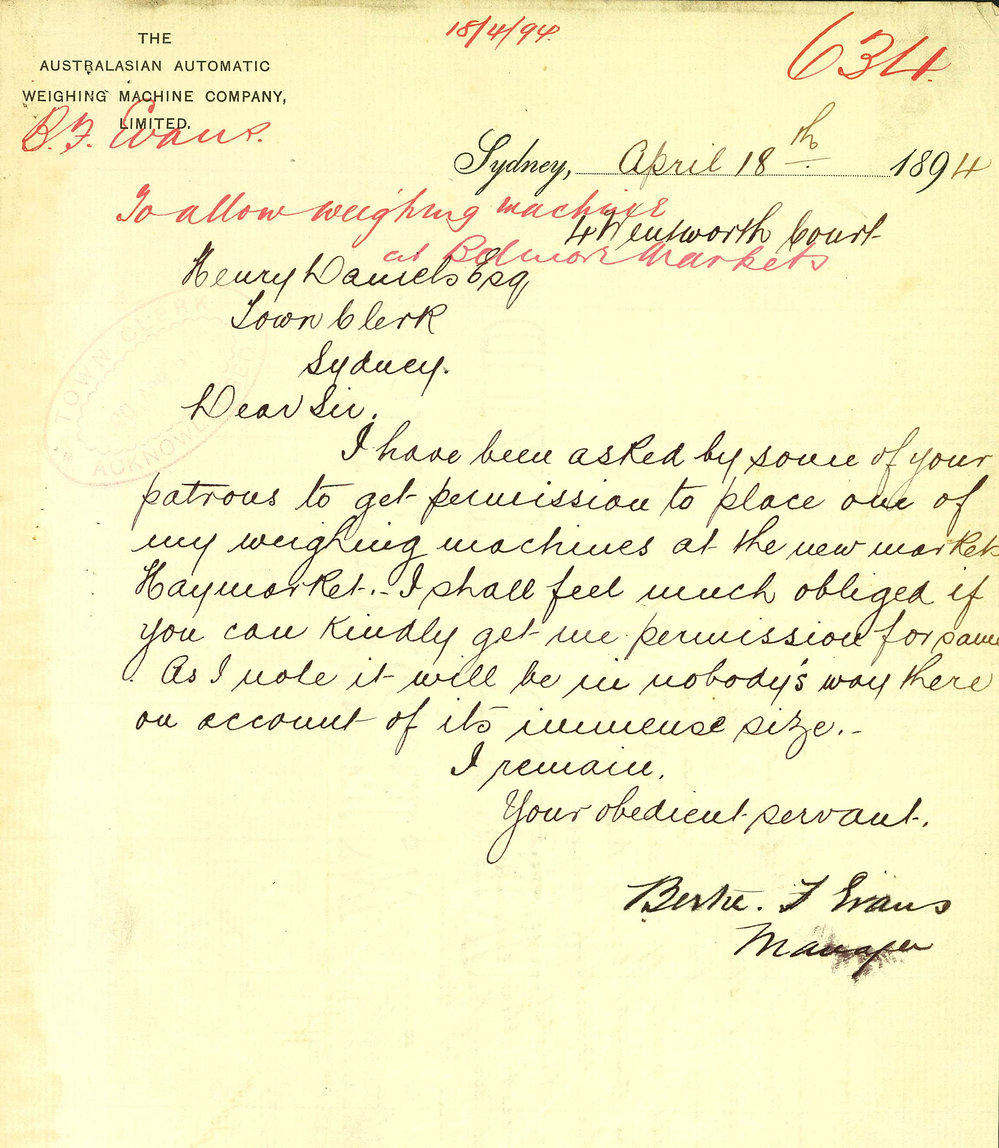 18/4/94.
634.
THE
AUSTRALASIAN AUTOMATIC
WEIGHING MACHINE COMPANY,
LIMITED.
B. F. Evans.
Sydney, April 18th 1894
To allow weighing machine
at Belmore Markets
4 Wentworth Court
Henry Daniels Esq,
Town Clerk
Sydney.
TOWN CLERK
ACKNOWLEDGED
Dear Sir,
I have been asked by some of your
patrons to get permission to place one of
my weighing machines at the new market
Haymarket. - I shall feel much obliged if
you can kindly get me permission for same
As I note it will be in nobody's way there
on account of its immense size. -
I remain,
Your obedient servant.
F Evans
Manager